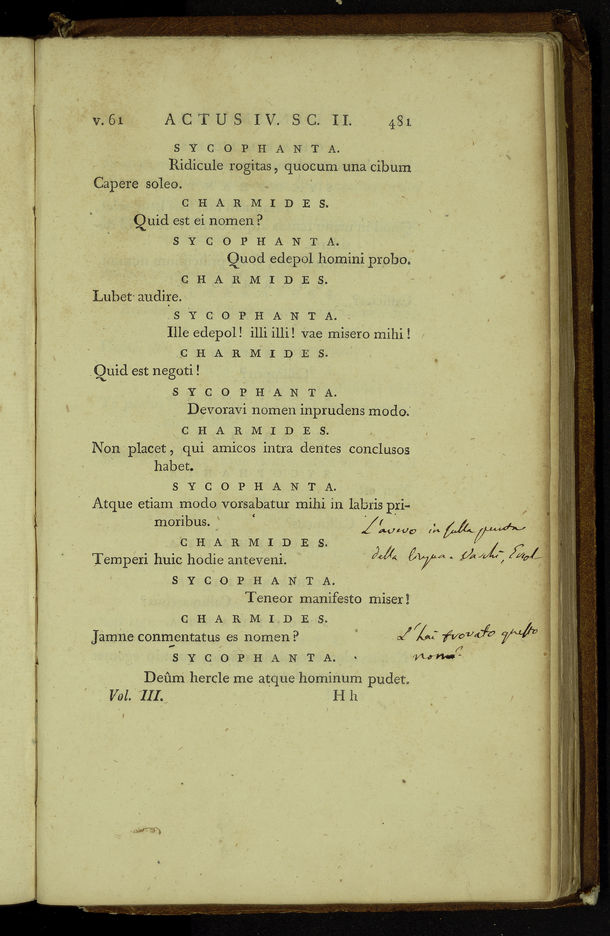 v. 61 ACTUS IV. SC. II. 481
SYCOPHANTA.
Ridicule rogitas, quocum una cibum
Capere soleo.
CHARMIDES.
Quid est ei nomen?
SYCOPHANTA.
Quod edepol homini probo.
CHARMIDES.
Lubet audire.
SYCOPHANTA.
Ille edepol! illi illi! vae misero mihi!
CHARMIDES.
Quid est negoti!
SYCOPHANTA.
Devoravi nomen inprudens modo.
CHARMIDES.
Non placet, qui amicos intra dentes conclusos
habet.
SYCOPHANTA.
Atque etiam modo vorsabatur mihi in labris pri-
moribus.
L'avevo in sulla punta
CHARMIDES.
della lingua. Varchi, Ercol
Temperi huic hodie anteveni.
SYCOPHANTA.
Teneor manifesto miser!
CHARMIDES.
Jamne conmentatus es nomen?
L'hai trovato questo
nome?
SYCOPHANTA.
Deûm hercle me atque hominum pudet.
Vol. III. Hh